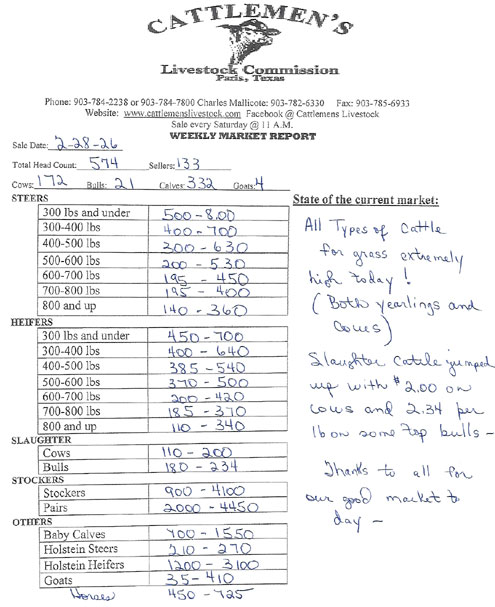 CATTLEMEN'S
Livestock Commission
Paris, Texas
Phone: 903-784-2238 or 903-784-7800 Charles Mallicote: 903-782-6330 Fax: 903-785-6933
Website: www.cattlemenslivestock.com Facebook @ Cattlemens Livestock
Sale every Saturday @ 11 A.M.
WEEKLY MARKET REPORT
Sale Date: 2-28-26
Total Head Count: 574 Sellers: 133
Cows: 172 Bulls: 21 Calves: 332 Goats: 4
STEERS
300 lbs and under 500-8.00
300-400 lbs 400-700
400-500 lbs 300-630
500-600 lbs 200-530
600-700 lbs 195-450
700-800 lbs 195-400
800 and up 140-360
HEIFERS
300 lbs and under 450-700
300-400 lbs 400-640
400-500 lbs 385-540
500-600 lbs 370-500
600-700 lbs 200-420
700-800 lbs 185-370
800 and up 110-340
SLAUGHTER
Cows 110-200
Bulls 180-234
STOCKERS
Stockers 900-4100
Pairs 2000-4450
OTHERS
Baby Calves 700-1550
Holstein Steers 210-270
Holstein Heifers 1200-3100
Goats 35-410
Horses 450-725
State of the current market:
All Types of Cattle
for grass extremely
high today!
(Both yearlings and
cows)
Slaughter Cattle jumped
up with $2.00 on
cows and 2.34 per
lb on some top bulls -
Thanks to all for
our good market to
day -